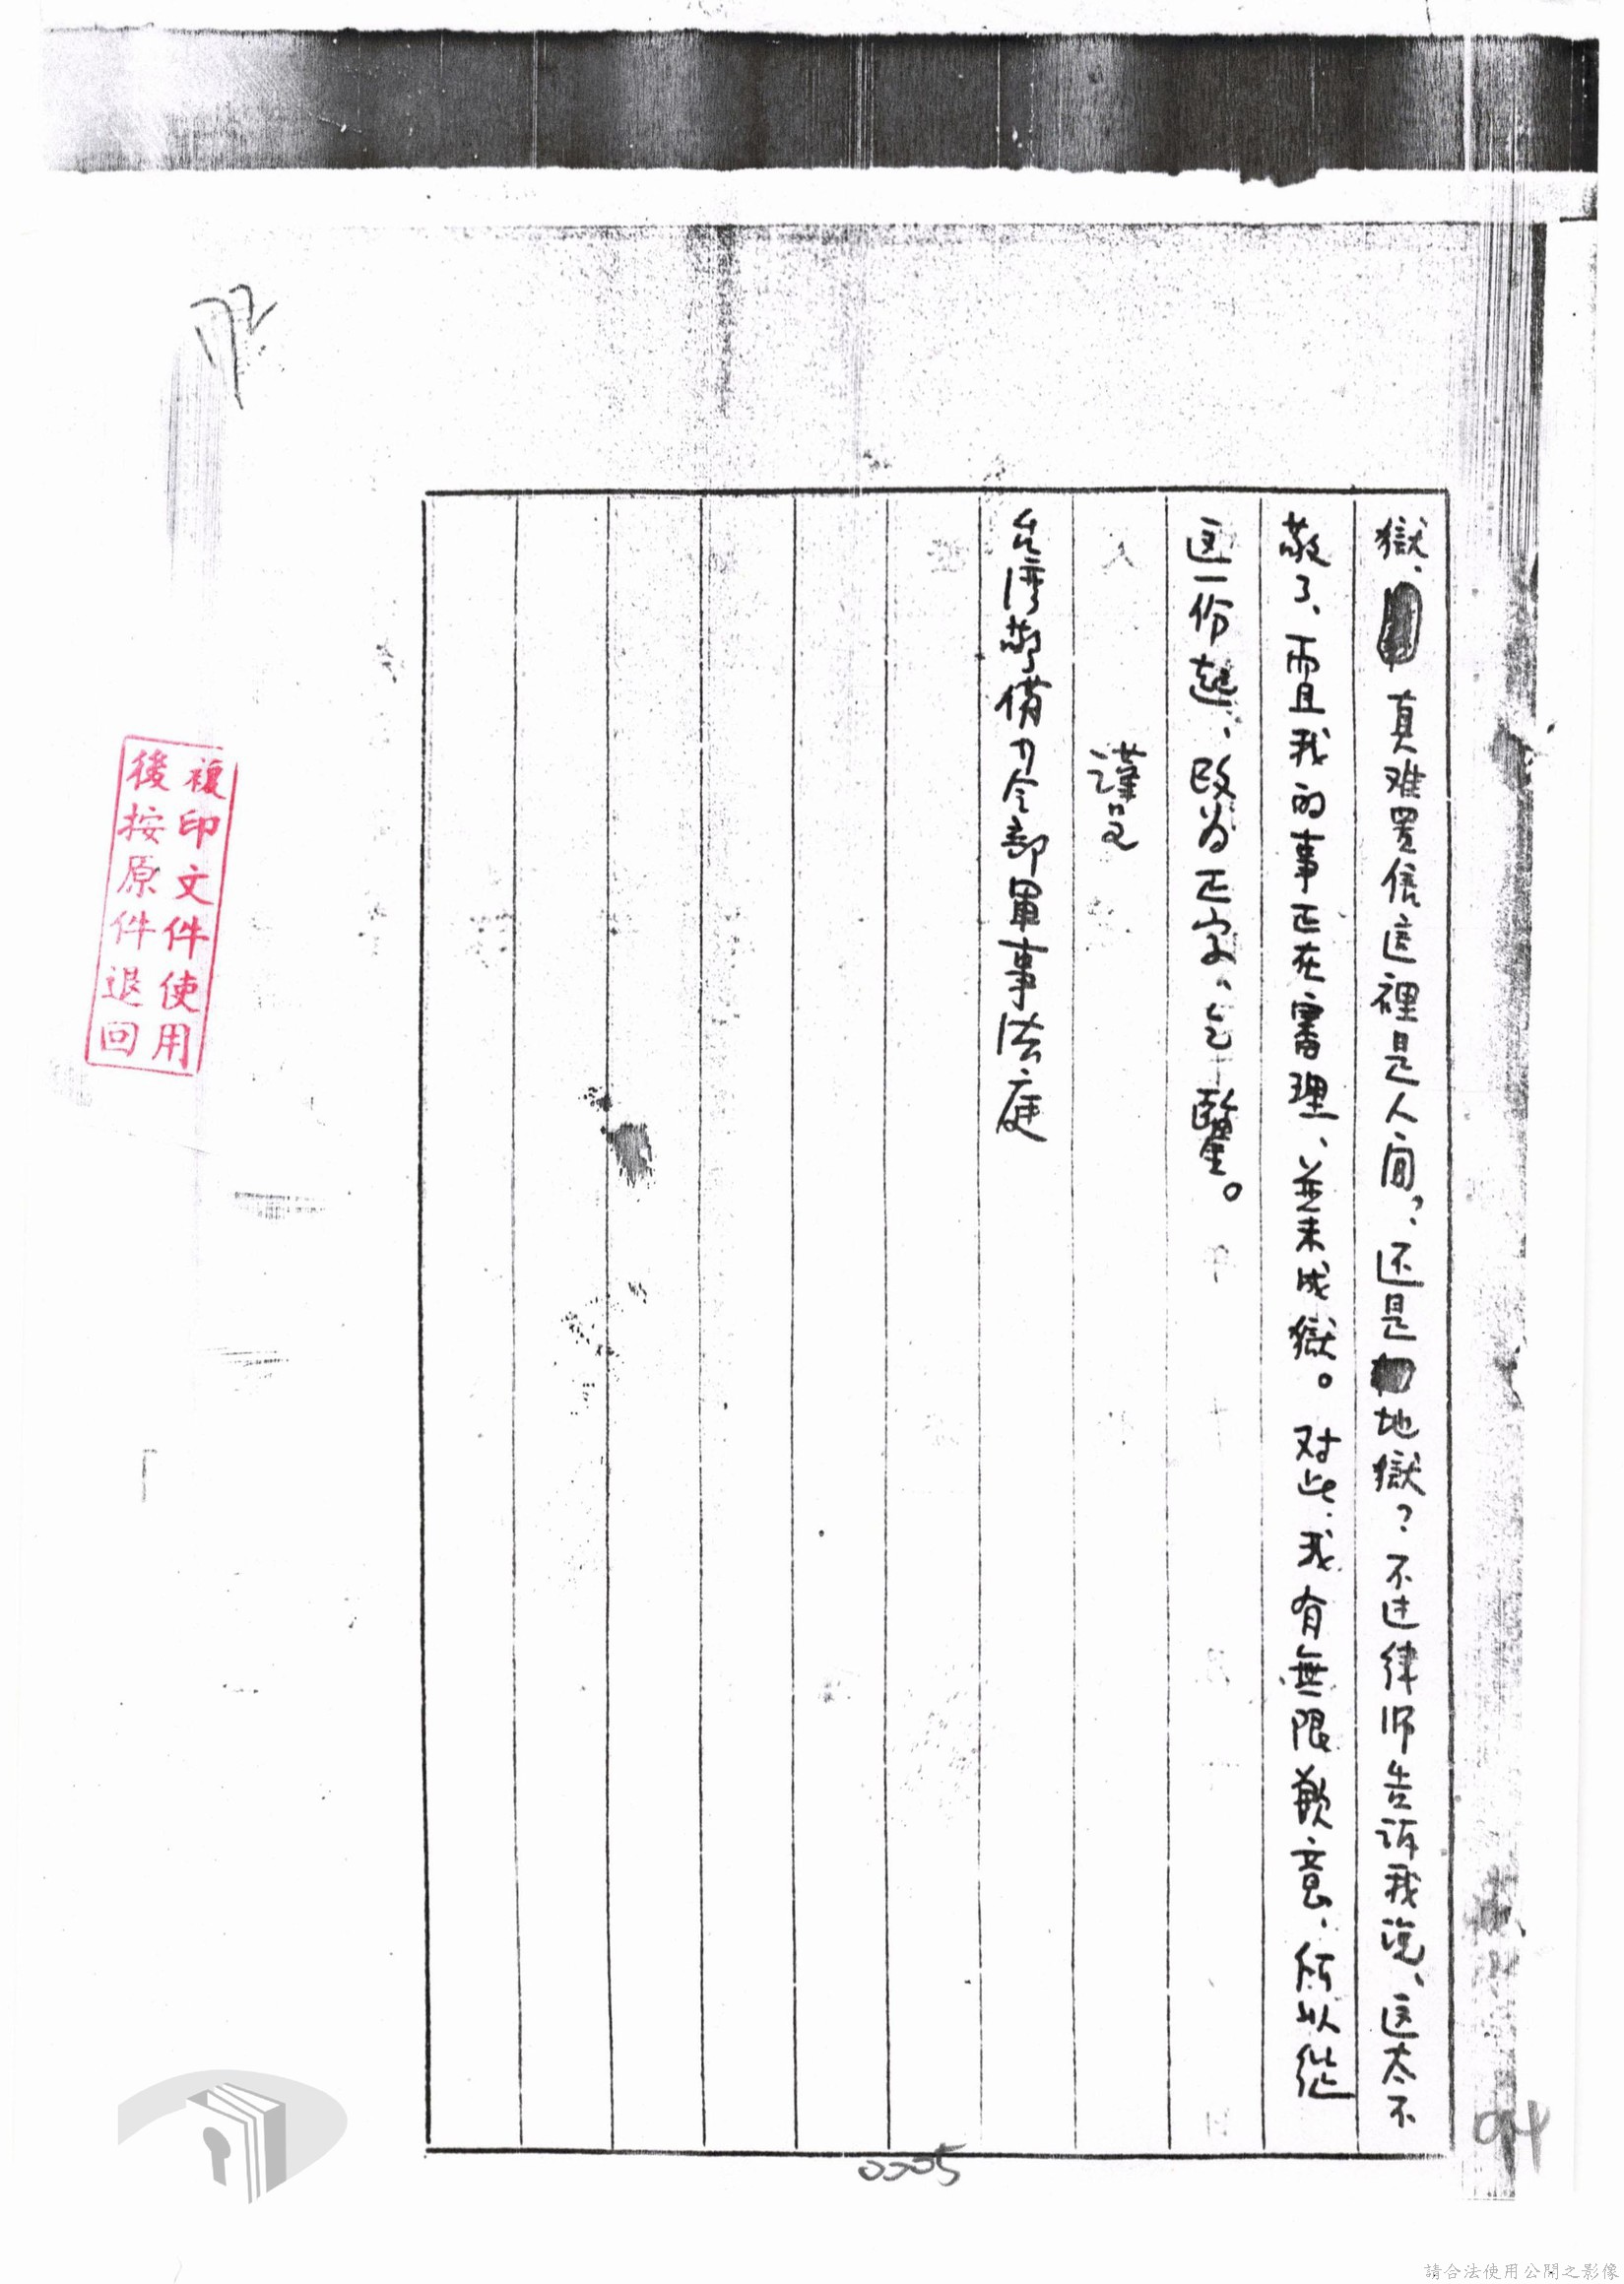 獄、真难置信這裡是人间？、还是地獄？不过律师告诉我说、这太不
敬了、而且我的事正在審理、並未成獄。对此、我有無限歉意、所以從
这一份起、改為正字、乞鑒。
謹呈
台湾警備司令部軍事法庭
複印文件使用
後按原件退回
172
0005
94
請合法使用公開之影像